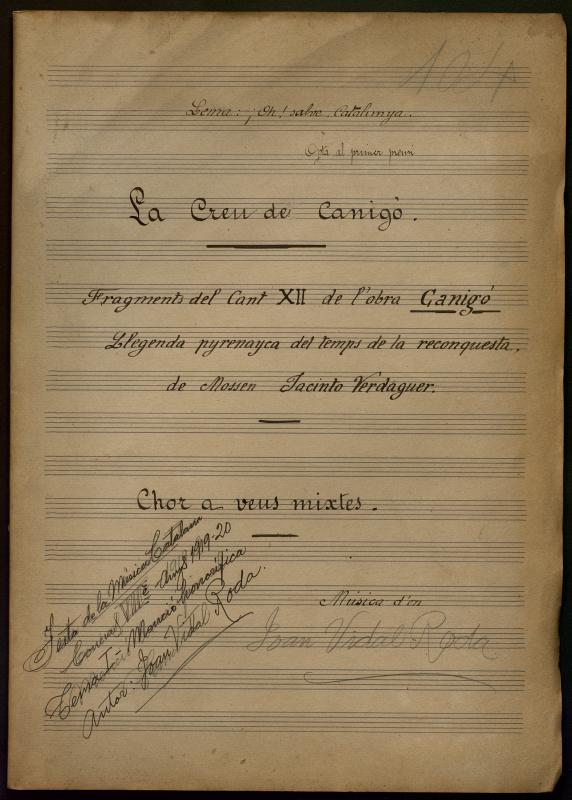 Lema: ¡Oh! salve, Catalunya.
Opta al primer premi
La Creu de Canigó.
Fragments del Cant XII de l'obra Canigó
Llegenda pyrenayca del temps de la reconquesta.
de Mossen Jacinto Verdaguer.
Chor a veus mixtes.
Festa de la Música Catalana
Concurs VIIIè Anys 1919-20
Tema I Menció honorífica
Autor: Joan Vidal Roda.
Música d'en
Joan Vidal Roda